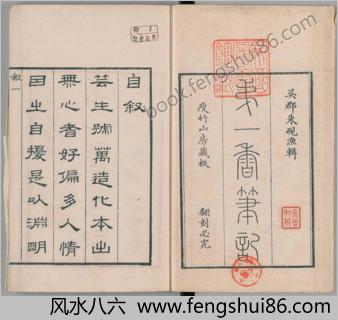 吳郡朱硯漁輯
弟一香筆記
瘦竹山房藏板
翻刻必究
自叙
芸生號萬造化本出
無心耆好偏多人情
因之自擾是以淵明
叙一
www.fengshui86.com
风水八六 · www.fengshui86.com